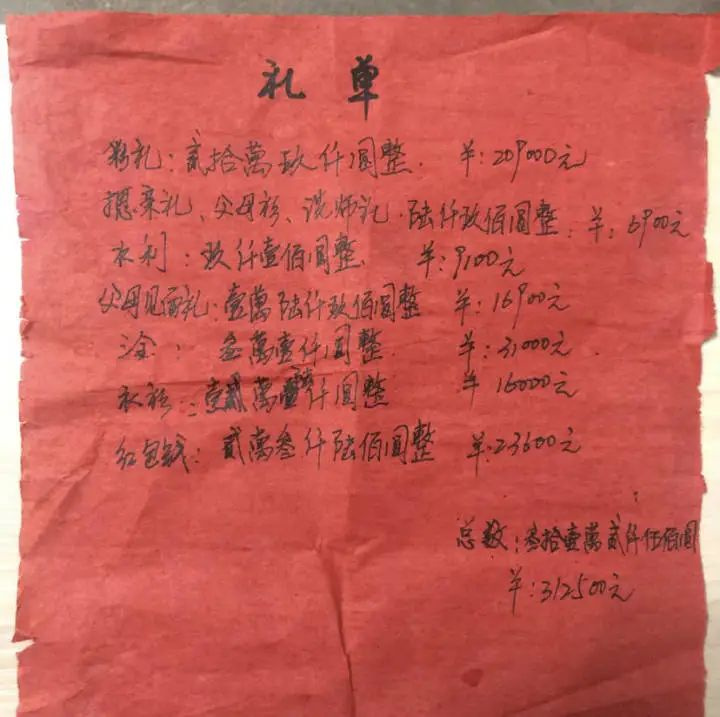 礼单
彩礼：贰拾萬玖仟圆整. 羊：209000元
摁亲礼、父母衫、说师礼. 陆仟玖佰圆整. 羊：6900元
水利：玖仟壹佰圆整. 羊：9100元
父母见面礼：壹萬陆仟玖佰圆整 羊：16900元
金：叁萬壹仟圆整. 羊：31000元
衣衫：壹萬陆仟圆整 羊 16000元
红包钱：贰萬叁仟陆佰圆整 羊：23600元
总数：叁拾壹萬贰仟伍佰圆
羊：312500元